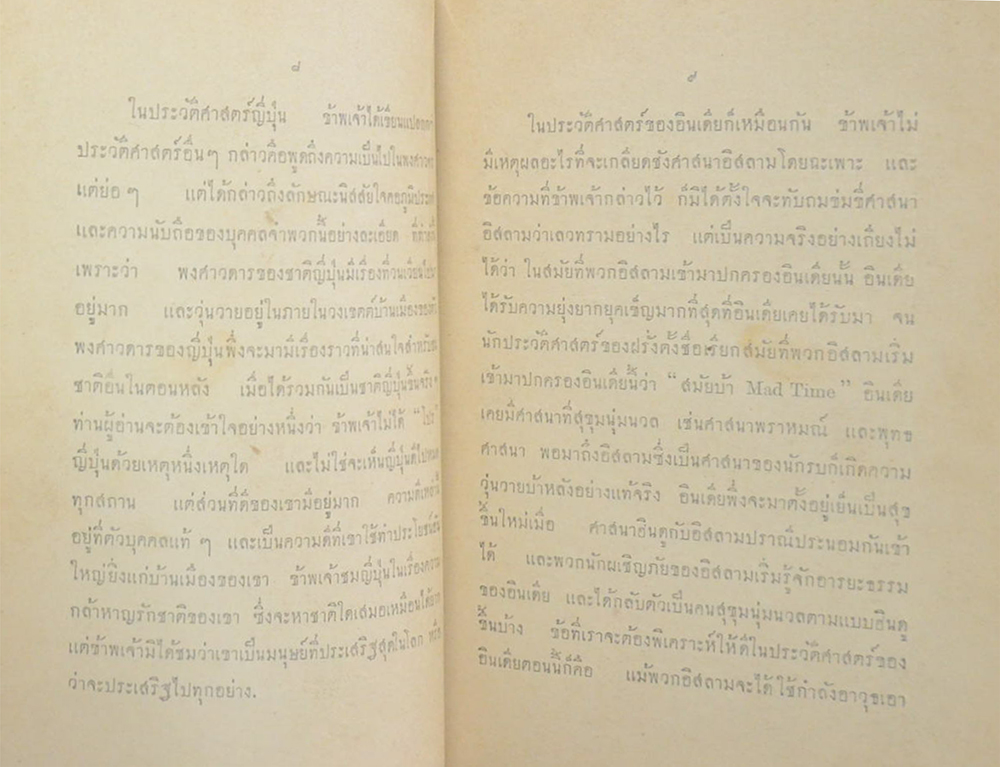 ๘
ในประวัติศาสตร์ญี่ปุ่น ข้าพเจ้าได้เขียน
ประวัติศาสตร์อื่นๆ กล่าวคือพูดถึงความเป็นไปใน
แต่ย่อๆ แต่ได้กล่าวถึงลักษณะนิสสัยใจคอ
และความนับถือของบุคคลจำพวกนี้อย่างละเอียด
เพราะว่า พงศาวดารของชาติญี่ปุ่นมีเรื่องที่
อยู่มาก และวุ่นวายอยู่ในภายในวงเขตต์บ้านเมือง
พงศาวดารของญี่ปุ่นพึ่งจะมามีเรื่องราวที่น่าสนใจสำหรับ
ชาติอื่นในตอนหลัง เมื่อได้รวมกันเป็นชาติญี่ปุ่นขึ้นจริงๆ
ท่านผู้อ่านจะต้องเข้าใจอย่างหนึ่งว่า ข้าพเจ้าไม่ได้
ญี่ปุ่นด้วยเหตุหนึ่งเหตุใด และไม่ใช่จะเห็นญี่ปุ่นดีไป
ทุกสถาน แต่ส่วนที่ดีของเขามีอยู่มาก ความดีเหล่านี้
อยู่ที่ตัวบุคคลแท้ๆ และเป็นความดีที่เขาใช้ทำประโยชน์
ใหญ่ยิ่งแก่บ้านเมืองของเขา ข้าพเจ้าชมญี่ปุ่นในเรื่องความ
กล้าหาญรักชาติของเขา ซึ่งจะหาชาติใดเสมอเหมือนได้
แต่ข้าพเจ้ามิได้ชมว่าเขาเป็นมนุษย์ที่ประเสริฐสุดในโลก
ว่าจะประเสริฐไปทุกอย่าง.
๙
ในประวัติศาสตร์ของอินเดียก็เหมือนกัน ข้าพเจ้าไม่
มีเหตุผลอะไรที่จะเกลียดชังศาสนาอิสลามโดยฉะเพาะ และ
ข้อความที่ข้าพเจ้ากล่าวไว้ ก็มิได้ตั้งใจจะทับถมข่มขี่ศาสนา
อิสลามว่าเลวทรามอย่างไร แต่เป็นความจริงอย่างเถียงไม่
ได้ว่า ในสมัยที่พวกอิสลามเข้ามาปกครองอินเดียนั้น อินเดีย
ได้รับความยุ่งยากยุคเข็ญมากที่สุดที่อินเดียเคยได้รับมา จน
นักประวัติศาสตร์ของฝรั่งตั้งชื่อเรียกสมัยที่พวกอิสลามเริ่ม
เข้ามาปกครองอินเดียนี้ว่า “สมัยบ้า Mad Time” อินเดีย
เคยมีศาสนาที่สุขุมนุ่มนวล เช่นศาสนาพราหมณ์ และพุทธ
ศาสนา พอมาถึงอิสลามซึ่งเป็นศาสนาของนักรบก็เกิดความ
วุ่นวายบ้าหลังอย่างแท้จริง อินเดียพึ่งจะมาตั้งอยู่เย็นเป็นสุข
ขึ้นใหม่เมื่อ ศาสนาฮินดูกับอิสลามปราณีประนอมกันเข้า
ได้ และพวกนักผเชิญภัยของอิสลามเริ่มรู้จักอารยะธรรม
ของอินเดีย และได้กลับตัวเป็นคนสุขุมนุ่มนวลตามแบบฮินดู
ขึ้นบ้าง ข้อที่เราจะต้องพิเคราะห์ให้ดีในประวัติศาสตร์ของ
อินเดียตอนนี้ก็คือ แม้พวกอิสลามจะได้ใช้กำลังอาวุธเอา